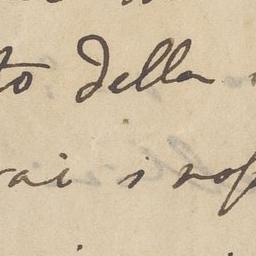 to della
rai i nos